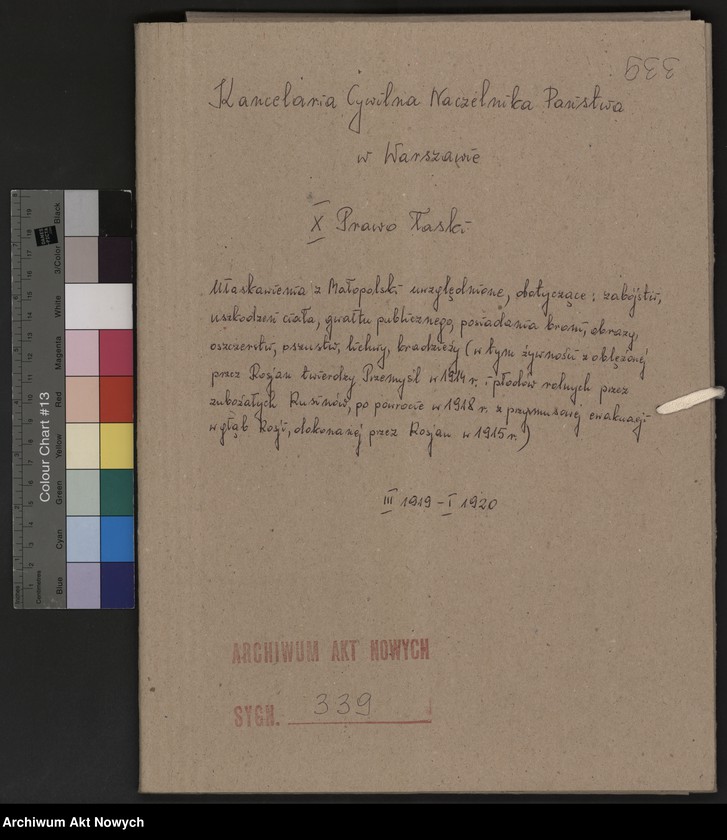 339
Kancelaria Cywilna Naczelnika Państwa
w Warszawie
X Prawo Łaski
Ułaskawienia z Małopolski uwzględnione, dotyczące: zabójstw,
uszkodzeń ciała, gwałtu publicznego, posiadania broni, obrazy,
oszczerstw, oszustw, lichwy, kradzieży (w tym żywności z oblężonej
przez Rosjan twierdzy Przemyśl w 1914 r. i płodów rolnych przez
zubożałych Rusinów, po powrocie w 1918 r. z przymusowej ewakuacji
w głąb Rosji, dokonanej przez Rosjan w 1915 r.)
III 1919 - I 1920
ARCHIWUM AKT NOWYCH
SYGN. 339
Colour Chart #13
Blue
Cyan
Green
Yellow
Red
Magenta
White
3/Color
Black
Centimetres
Inches
Archiwum Akt Nowych